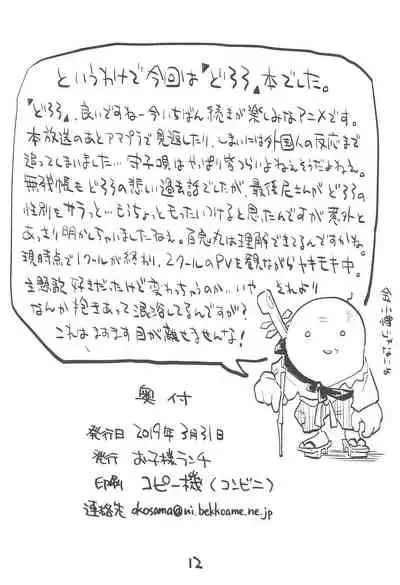 というわけで今回は『どろろ』本でした。
『どろろ』、良いですねー今いちばん続きが楽しみなアニメです。
本放送のあとアマプラで見返したり、しまいには外国人の反応まで
追ってしまいました…守子唄はやっぱり皆つらいよねえそうだよねえ。
無残帳もどろろの悲しい過去話でしたが、最後尼さんがどろろの
性別をサラっと…もうちょっともったいつけると思ったんですが意外と
あっさり明かしちゃいましたねえ。百鬼丸は理解できてるんですかね。
現時点で1クールが終わり、2クールのPVを観ながらヤキモキ中。
主題歌好きだったけど変わっちゃうのか…いや、それより
なんか抱きあって混浴してるんですが?
これはますます目が離せませんな!
奥付
発行日 2019年3月31日
発行 お子様ランチ
印刷 コピー機(コンビニ)
連絡先 okosama@ni.bekkoame.ne.jp
12